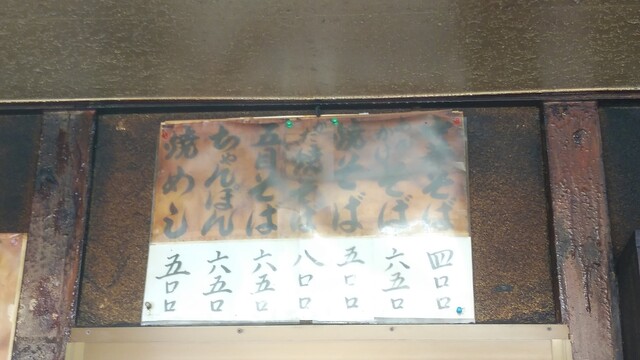 そば 四〇〇
そば 六五〇
焼そば 五〇〇
焼そば 八〇〇
五目そば 六五〇
ちゃんぽん 六五〇
焼めし 五〇〇